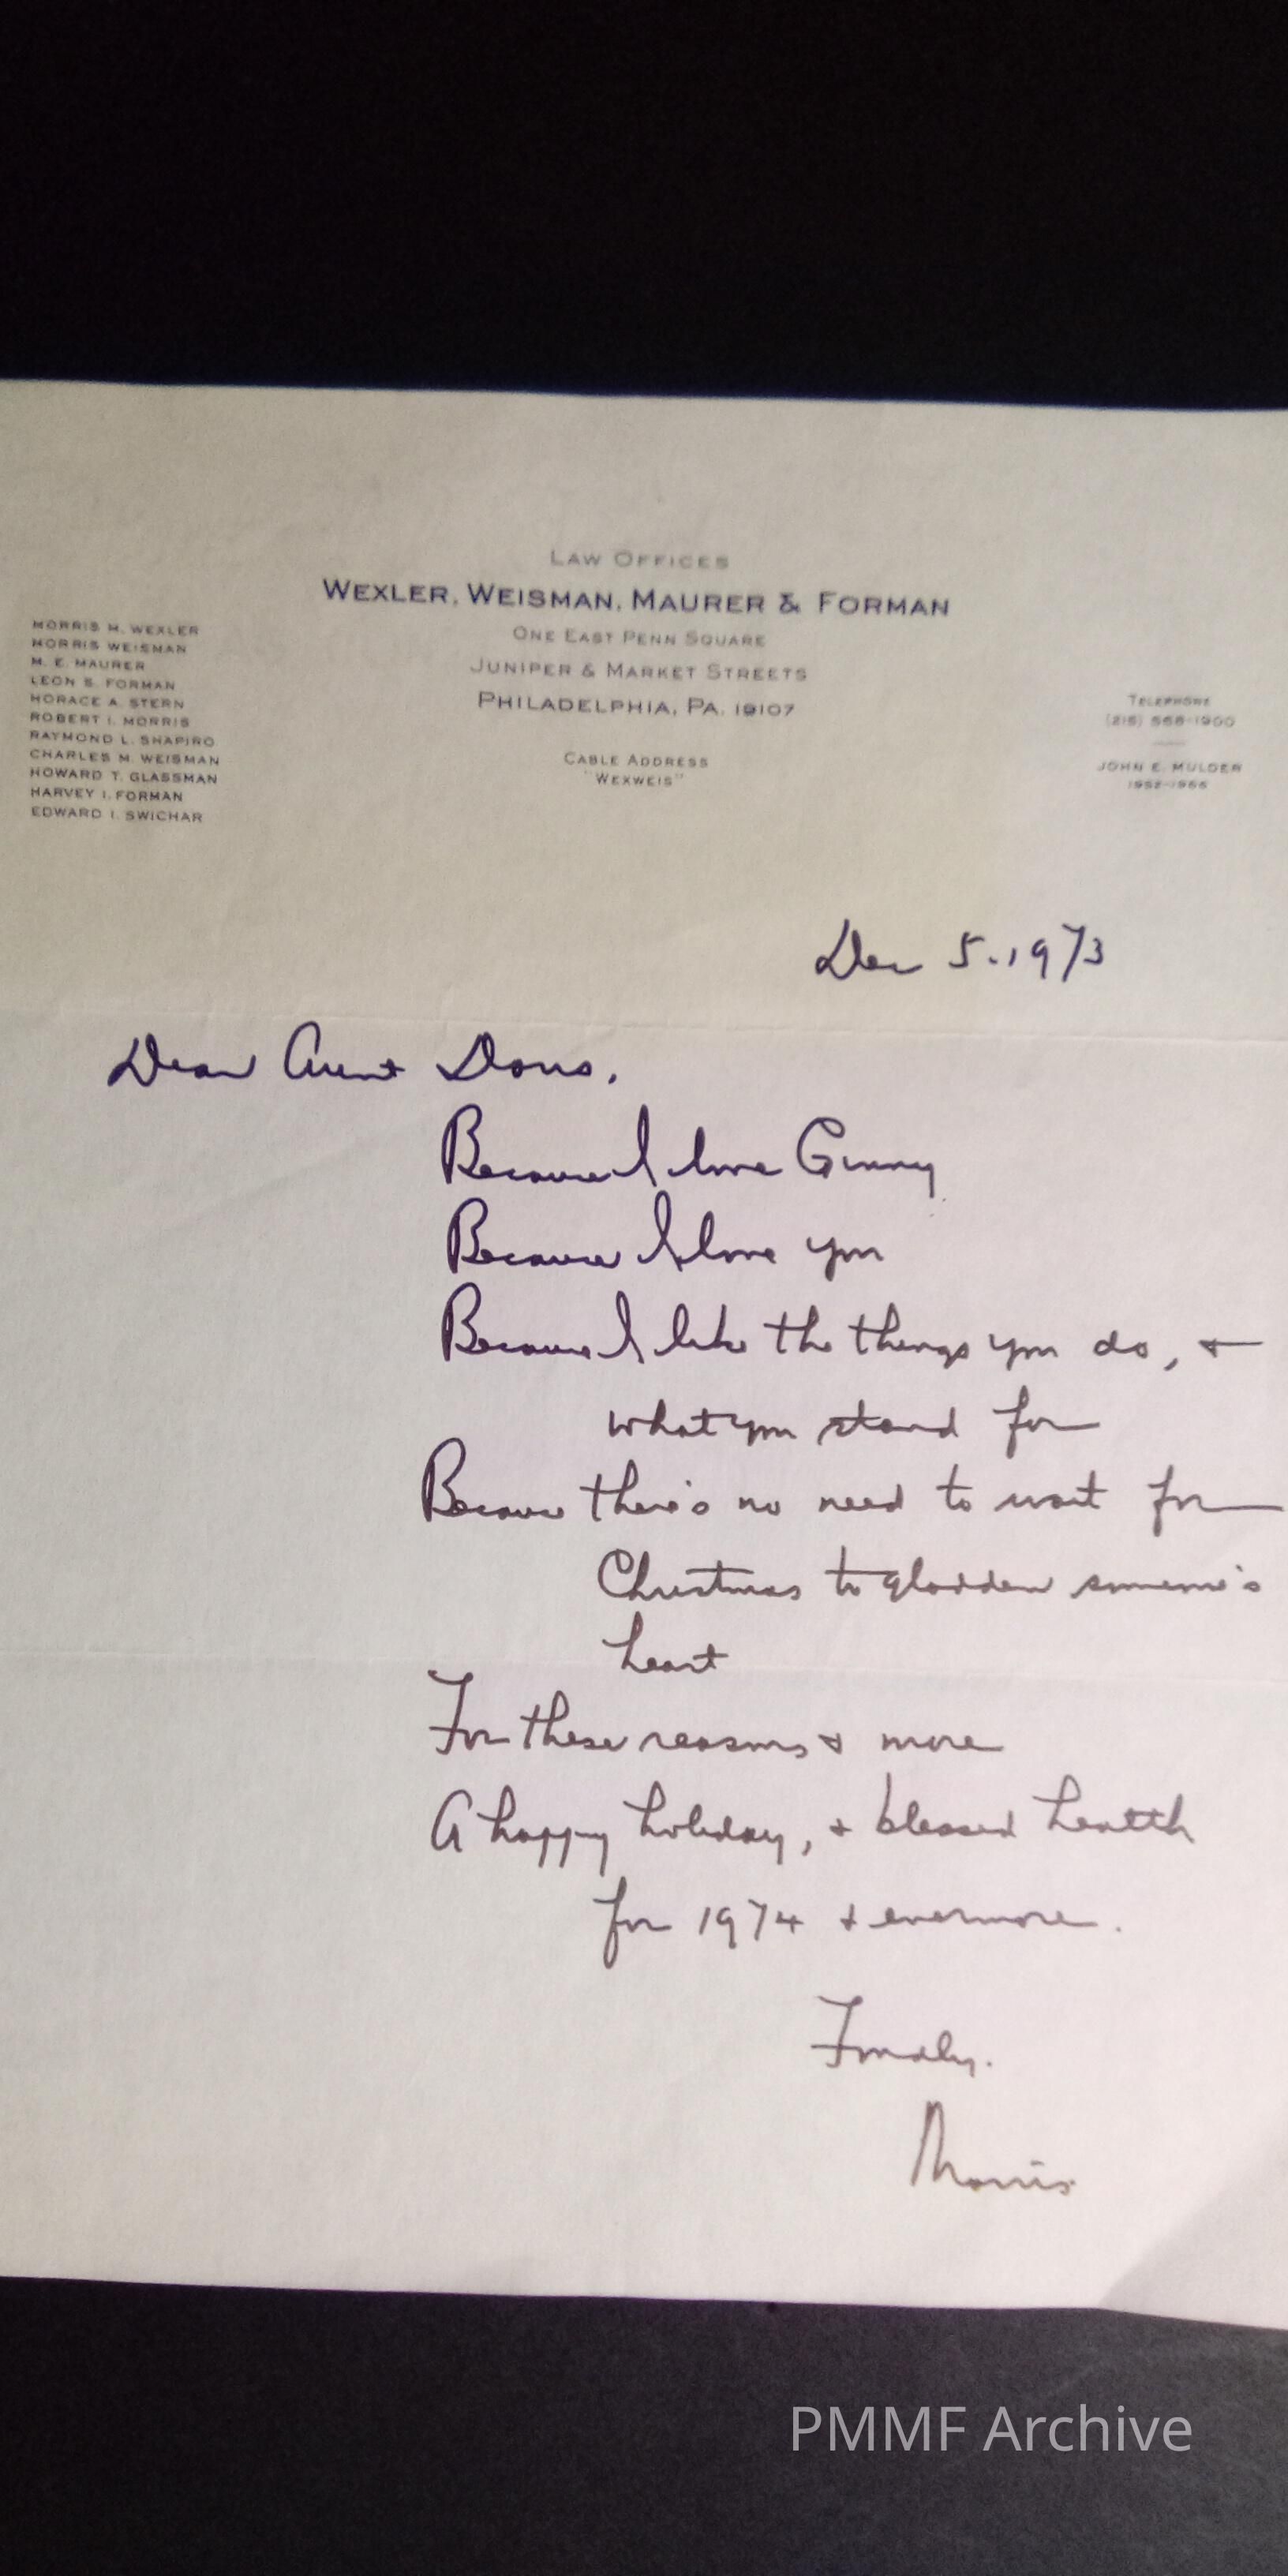 LAW OFFICES
WEXLER, WEISMAN, MAURER & FORMAN
ONE EAST PENN SQUARE
JUNIPER & MARKET STREETS
PHILADELPHIA, PA. 19107
CABLE ADDRESS
"WEXWEIS"
MORRIS M. WEXLER
MORRIS WEISMAN
M. E. MAURER
LEON S. FORMAN
HORACE A. STERN
ROBERT I. MORRIS
RAYMOND L. SHAPIRO
CHARLES M. WEISMAN
HOWARD T. GLASSMAN
HARVEY I. FORMAN
EDWARD I. SWICHAR
TELEPHONE
(215) 568-1900
JOHN E. MULDER
1952-1966
Dec 5. 1973
Dear Aunt Doris,
Because I love Ginny
Because I love you
Because I like the things you do, &
what you stand for
Because there's no need to wait for
Christmas to gladden someone's
heart
For these reasons & more
A happy holiday, & blessed health
for 1974 & evermore.
Fondly,
Morris
PMMF Archive